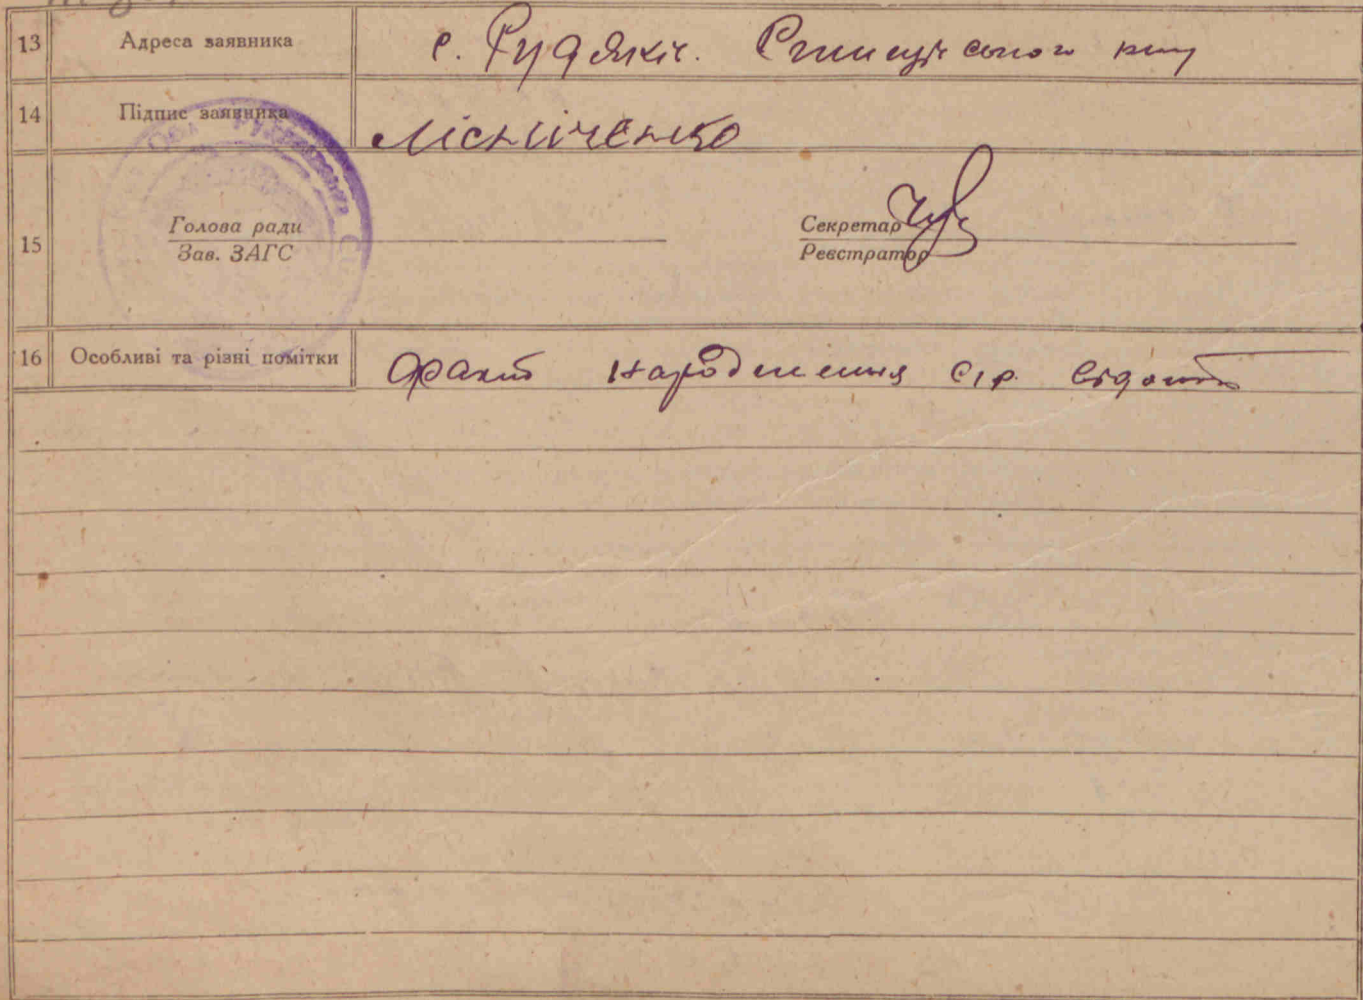 13 Адреса заявника с. Рудяків. Ржищівського р-ну
14 Підпис заявника Лісніченко
15 Голова ради
Зав. ЗАГС
Секретар
Реєстратор
16 Особливі та різні помітки Факт народження с/р. відомий